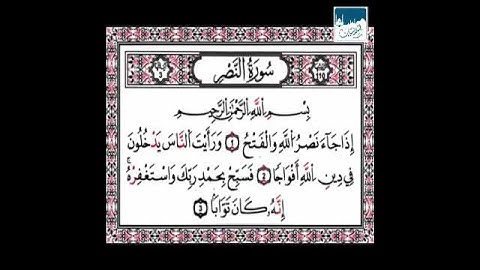 سُورَةُ النَّصْرِ
بِسْمِ اللَّهِ الرَّحْمَٰنِ الرَّحِيمِ
إِذَا جَاءَ نَصْرُ اللَّهِ وَالْفَتْحُ ١ وَرَأَيْتَ النَّاسَ يَدْخُلُونَ
فِي دِينِ اللَّهِ أَفْوَاجًا ٢ فَسَبِّحْ بِحَمْدِ رَبِّكَ وَاسْتَغْفِرْهُ
إِنَّهُ كَانَ تَوَّابًا ٣